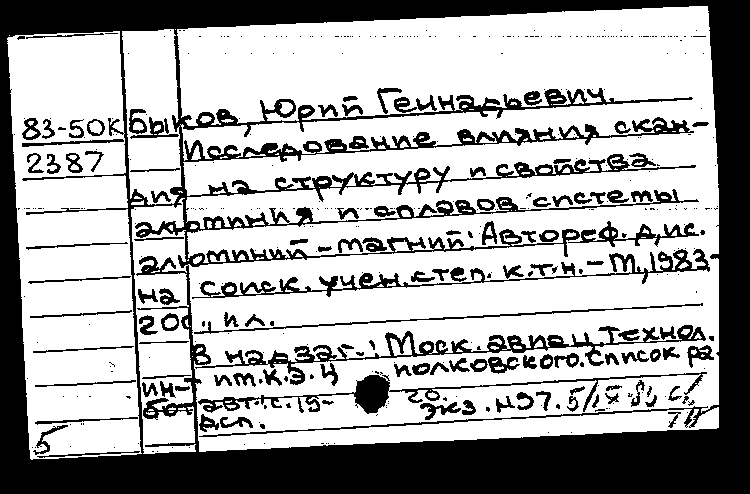 83-50К Быков, Юрий Геннадьевич.
2387 Исследование влияния скан-
дия на структуру и свойства
алюминия и сплавов системы
алюминий-магний: Автореф. дис.
на соиск. учен. степ. к.т.н. - М., 1983-
20с., ил.
В надзаг.: Моск. авиац. технол.
ин-т им. К.Э. Ц иолковского. Список ра-
бот авт.: с. 19-20.
ДСП. Экз. №97.
5